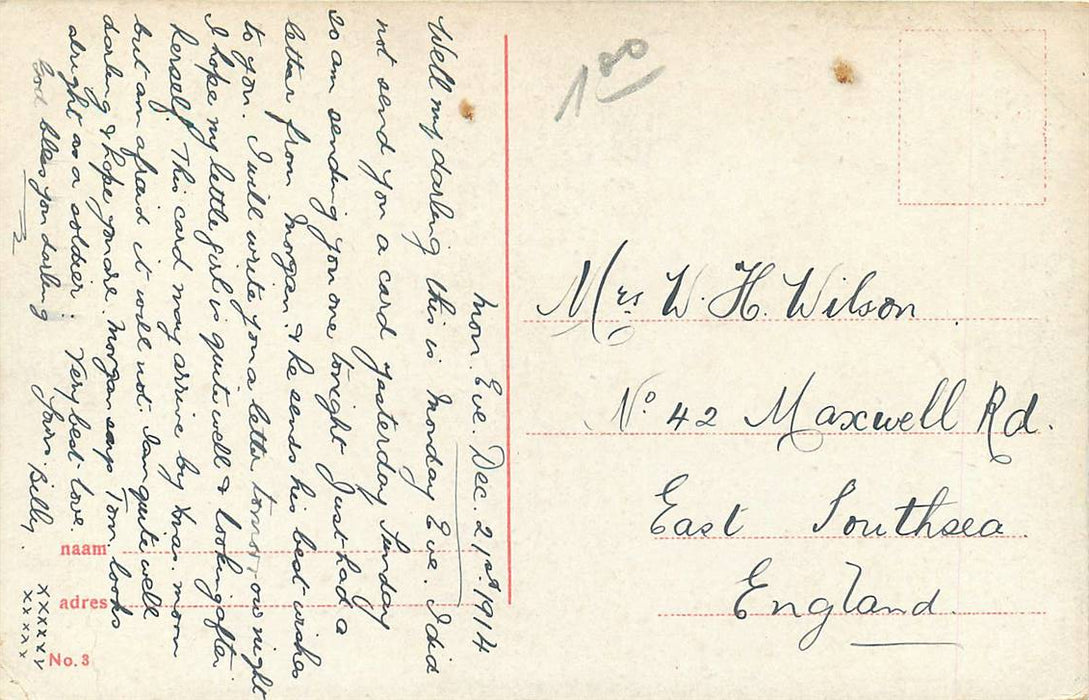 Mon. Eve. Dec. 21st 1914
Well my darling this is Monday Eve. I did
not send you a card yesterday Sunday
so am sending you one tonight Just had a
letter from Morgan & he sends his best wishes
to you. I will write you a letter tomorrow night
I hope my little girl is quite well & looking after
herself. This card may arrive by Xmas. morn
but am afraid it will not. I am quite well
darling & hope you are. Morgan says Tom looks
alright as a soldier. Very best love.
God bless you darling
Yours Billy.
xxxxxx
xxxxx
1 00
Mrs W. H. Wilson.
No 42 Maxwell Rd.
East Southsea.
England.
naam
adres
No. 3